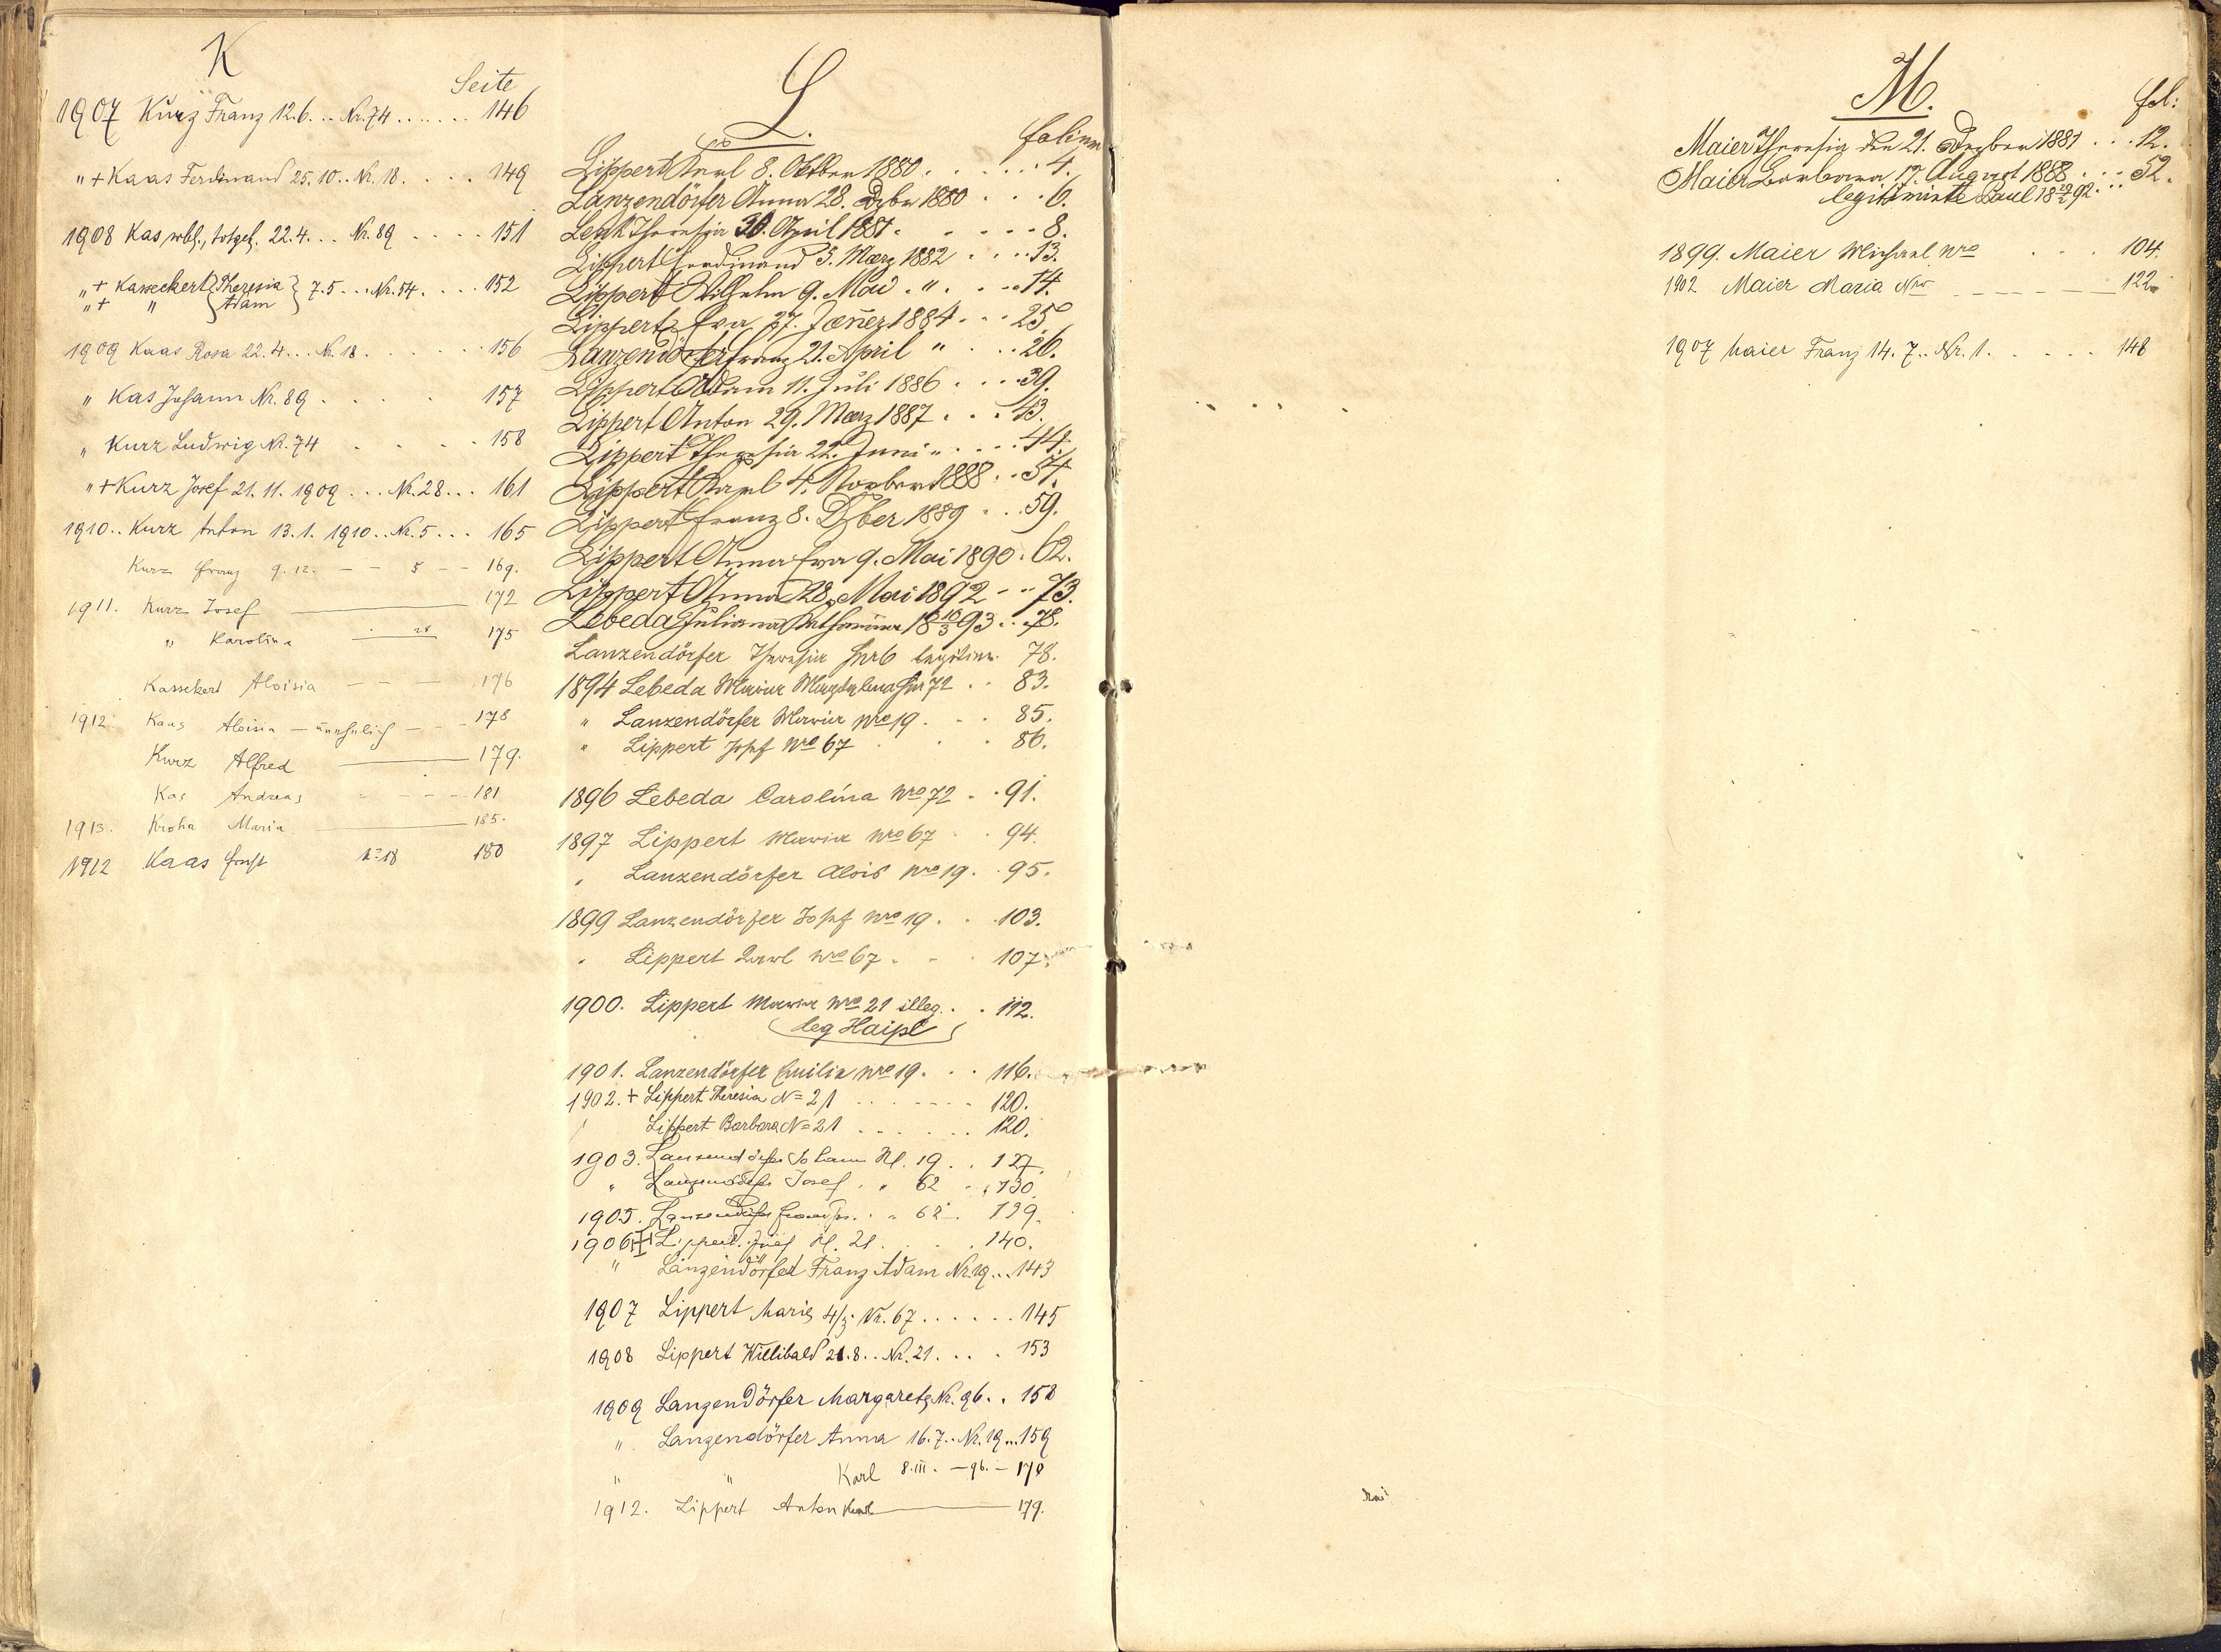 K
Seite
1907 Kurz Franz 12.6... Nr. 74 ...... 146
" + Kaas Ferdinand 25.10.. Nr. 18. .... 149
1908 Kas wbl., totgeb. 22.4... Nr. 89 .... 151
" + Kasseckert Theresia } 7.5... Nr. 54. ... 152
" + " Adam
1909 Kaas Rosa 22.4... Nr. 18. ...... 156
" Kas Johann Nr. 89 ..... 157
" Kurz Ludwig Nr. 74 .... 158
" + Kurz Josef 21.11.1909 ... Nr. 28... 161
1910.. Kurz Anton 13.1.1910.. Nr. 5... 165
Kurz Franz 9.12. - - 5 - - 169.
1911. Kurz Josef 172
" Karolina 175
Kassekert Aloisia - - - 176
1912 Kaas Aloisia - unehelich - - - 178
Kurz Alfred 179.
Kas Andreas - - - - 181
1913. Kroha Maria 185.
1912 Kaas Ernst No 18 180
L.
folium
Lippert Karl 8. Oktber 1880 ...... 4.
Lanzendörfer Anna 28. Dzbr 1880 ... 6.
Lenk Theresia 30. April 1881. ..... 8.
Lippert Ferdinand 5. März 1882 .... 13.
Lippert Wilhelm 9. Mai " .... 14.
Lippert Eva 27. Jänner 1884 ... 25.
Lanzendörfer Franz 21. April " ... 26.
Lippert Adam 11. Juli 1886 .... 39.
Lippert Anton 29. März 1887 ... 43.
Lippert Theresia 22. Juni " .... 44.
Lippert Karl 4. Novber 1888 .. 54.
Lippert Franz 8. Dzber 1889 ... 59.
Lippert Anna Eva 9. Mai 1890. 62.
Lippert Anna 28. Mai 1892 - .. 73.
Lebeda Juliana 18 10/3 93 .. 78.
Lanzendörfer Theresia 78.
1894 Lebeda Maria Magdalena 72 .. 83.
" Lanzendörfer Maria Nro 19. .. 85.
" Lippert Josef Nro 67 ... 86.
1896 Lebeda Carolina Nro 72 .. 91.
1897 Lippert Maria Nro 67 .. 94.
" Lanzendörfer Alois Nro 19. . 95.
1899 Lanzendörfer Josef Nro 19. .. 103.
" Lippert Karl Nro 67 ... 107.
1900. Lippert Maria Nro 21 illeg. .. 112.
(leg Haipl)
1901. Lanzendörfer Emilia Nro 19. .. 116.
1902. + Lippert Theresia No 21 ....... 120.
Lippert Barbara No 21 ...... 120.
1903. Lanzendörfer Johann N. 19 .. 127.
" Lanzendörfer Josef . " 62 .. 130.
1905. Lanzendörfer . " 62 . 139.
1906 + Lippert Josef N. 21 .... 140.
" Lanzendörfer Franz Adam Nr. 19 ... 143
1907 Lippert Marie 4/3. Nr. 67 ...... 145
1908 Lippert Willibald 21.8.. Nr. 21. ... 153
1909 Lanzendörfer Margareta Nr. 96.. 158
" Lanzendörfer Anna 16.7.. Nr. 19 ... 159
" " Karl 8.III. - 96. - 178
1912. Lippert Anton Karl 179.
M.
fol:
Maier Theresia den 21. Dezber 1881 ... 12.
Maier Barbara 17. August 1888 ... 52.
legitimirte Paul
1899. Maier Michael Nro ... 104.
1902 Maier Maria Nro 122.
1907 Maier Franz 14.7.. Nr. 1. .... 148